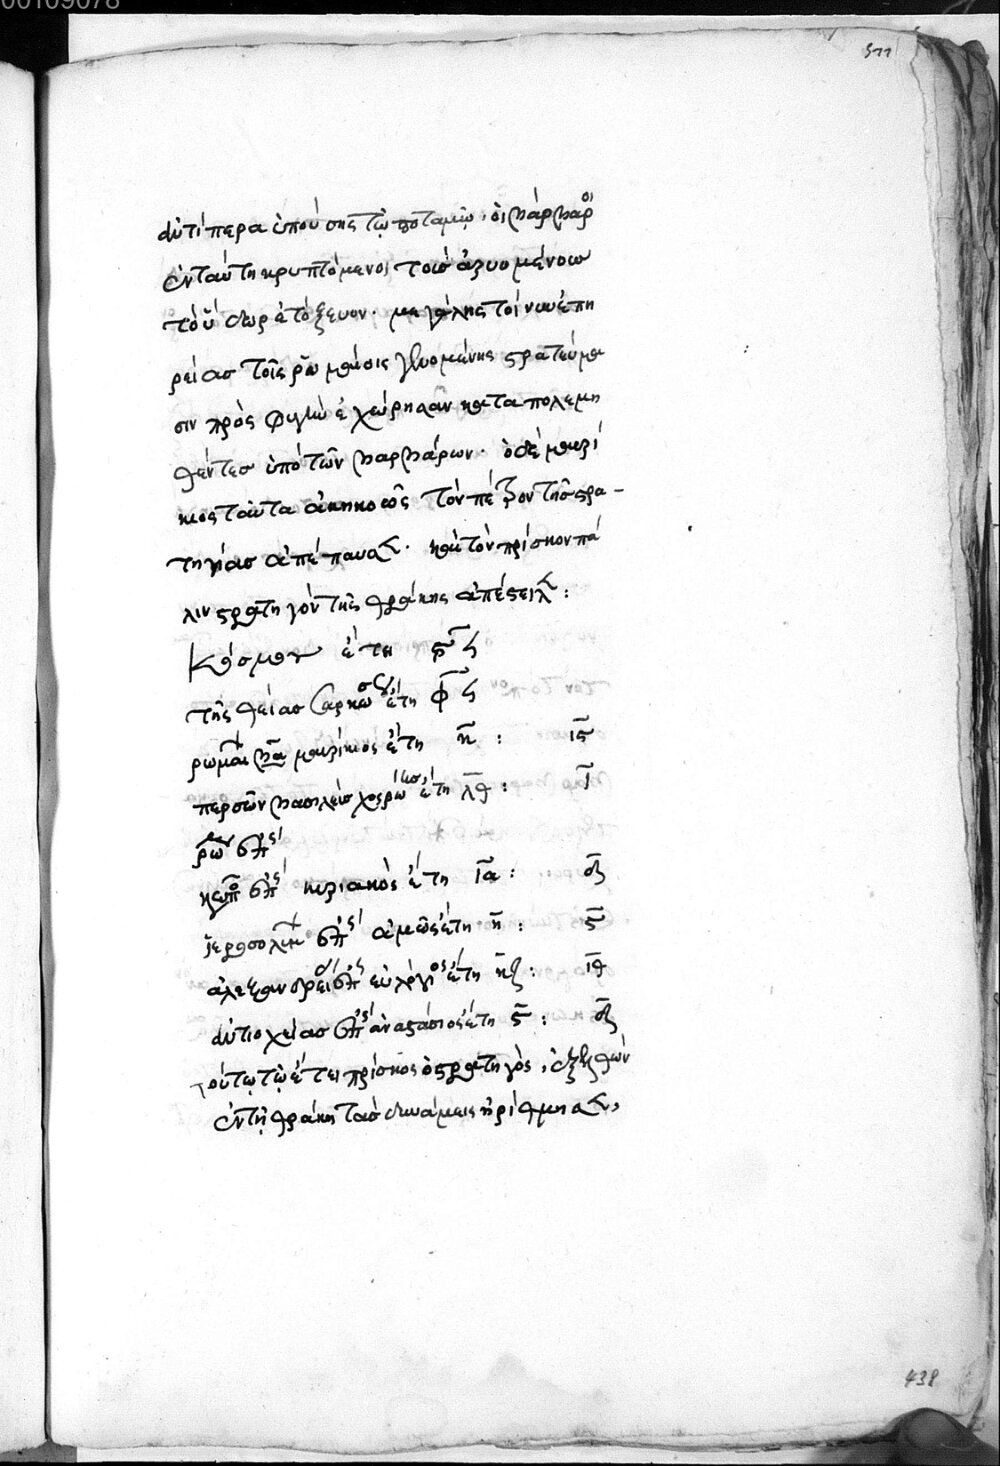 00109078
511
ἀντίπερα ὑπούσης τῷ ποταμῷ, οἱ βάρβαροι
ἐν ταύτη κρυπτόμενοι τοισ ἀρυομένοισ
τὸ ὕδωρ ἐτόξευον. μεγάλης τοίνυν ἐπη
ρείασ τοῖς ρωμαίοις γενομένης στρατεύμα
σιν πρὸς φυγὴν ἐχώρησαν καταπολεμη
θέντεσ ὑπὸ τῶν βαρβάρων. ὁ δὲ μαυρί
κιος ταῦτα ἀκηκοὼς τὸν πέτρον τῆς στρα-
τηγίασ ἀπέπαυσε. καὶ τὸν πρίσκον πά
λιν στρατηγὸν τῆς θράκης ἀπέστειλε:
Κόσμου ἔτη
τῆς θείασ σαρκώσεως ἔτη φ
ρωμαίων βα μαυρίκιος ἔτη η̅ : ις̅
περσῶν βασιλεὺσ χοσρόης ἔτη λθ̅ : ι̅
ρώμης ἐπίς
κωνπό ἐπίς κυριακὸς ἔτη ια̅ :
ἱεροσολύμων ἐπίς ἀμὼς ἔτη η̅ : ς̅
ἀλεξανδρείας ἐπίς εὐλόγιος ἔτη κζ̅ : ιθ̅
ἀντιοχείασ ἐπίς ἀναστάσιος ἔτη ς̅ :
τούτῳ τῷ ἔτει πρίσκος ὁ στρατηγὸς, ἐξελθὼν
ἐν τῇ θράκη τασ δυνάμεις ἠρίθμησε,
438